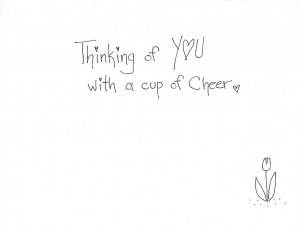 Thinking of YOU
with a cup of Cheer.